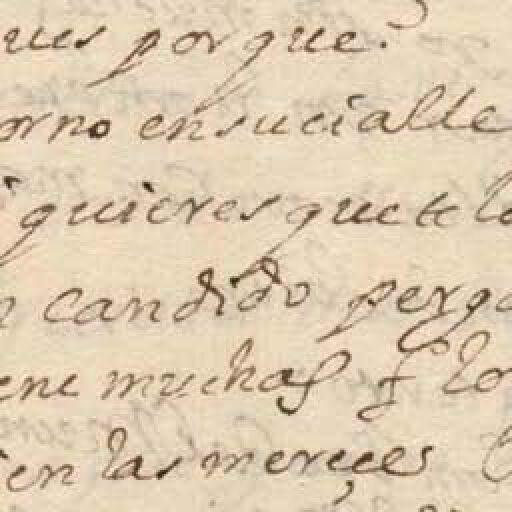 ues porque?
orno ensucialle
i quieres que te lo
n candido perga
ene muchas q̃ lo
ien las merçes